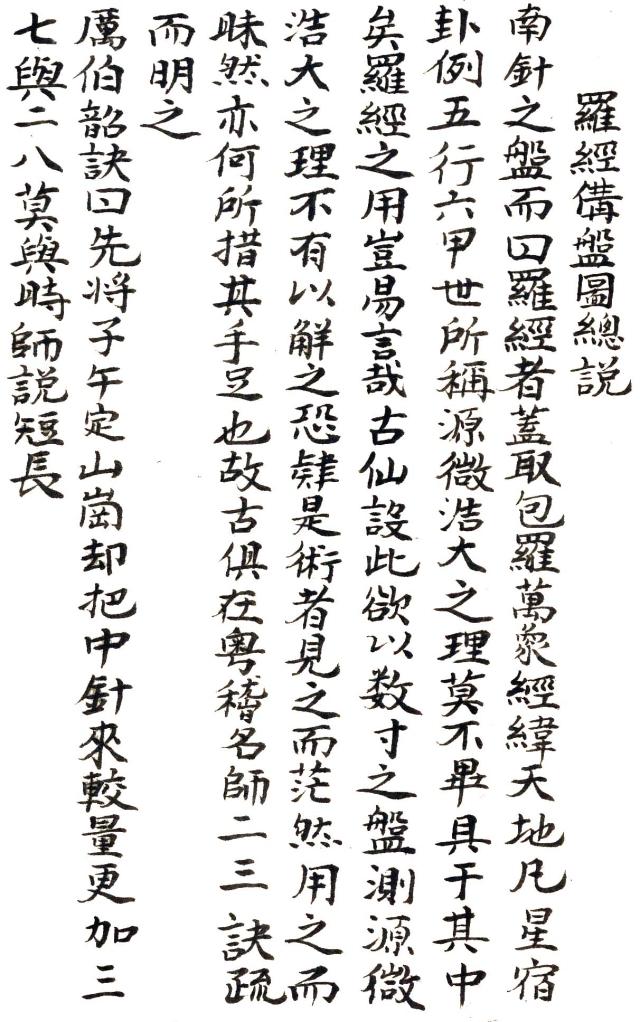 羅經備盤圖總說
南針之盤而曰羅經者蓋取包羅萬象經緯天地凡星宿
卦例五行六甲世所稱源微浩大之理莫不畢具于其中
矣羅經之用豈易言哉古仙設此欲以数寸之盤測源微
浩大之理不有以解之恐肄是術者見之而茫然用之而
昧然亦何所措其手足也故古俱在粤稽名師二三訣疏
而明之
厲伯韶訣曰先將子午定山崗却把中針來較量更加三
七與二八莫與時師說短長